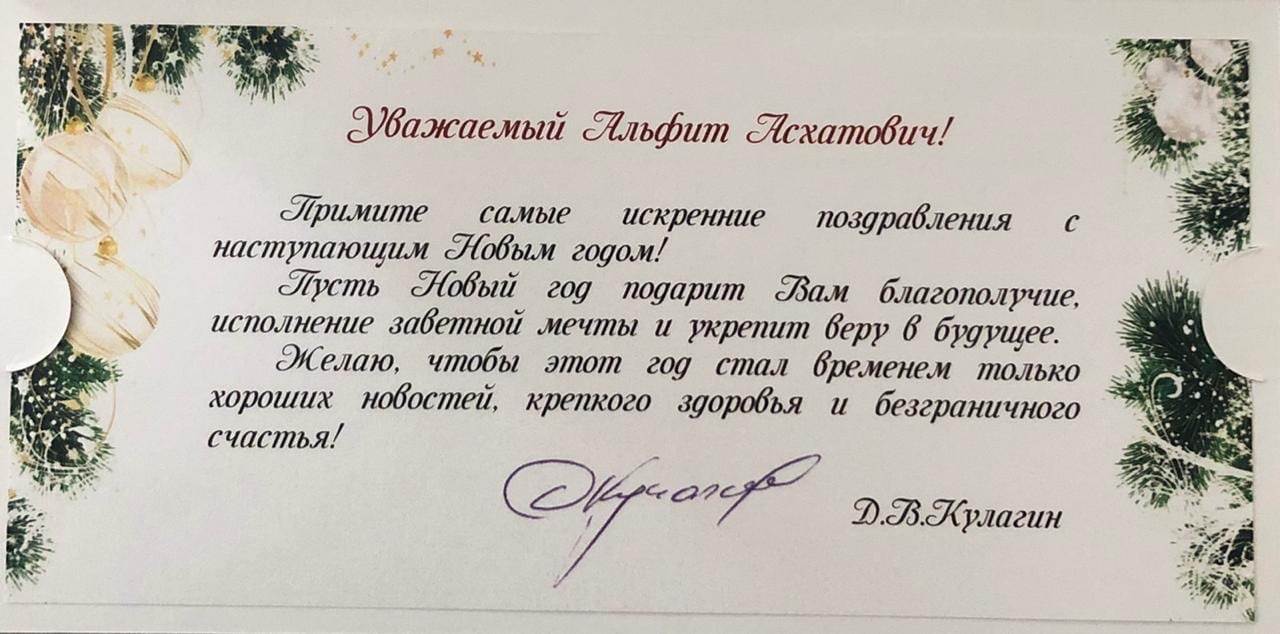 Уважаемый Альфит Асхатович!
Примите самые искренние поздравления с
наступающим Новым годом!
Пусть Новый год подарит Вам благополучие,
исполнение заветной мечты и укрепит веру в будущее.
Желаю, чтобы этот год стал временем только
хороших новостей, крепкого здоровья и безграничного
счастья!
Д.В.Кулагин